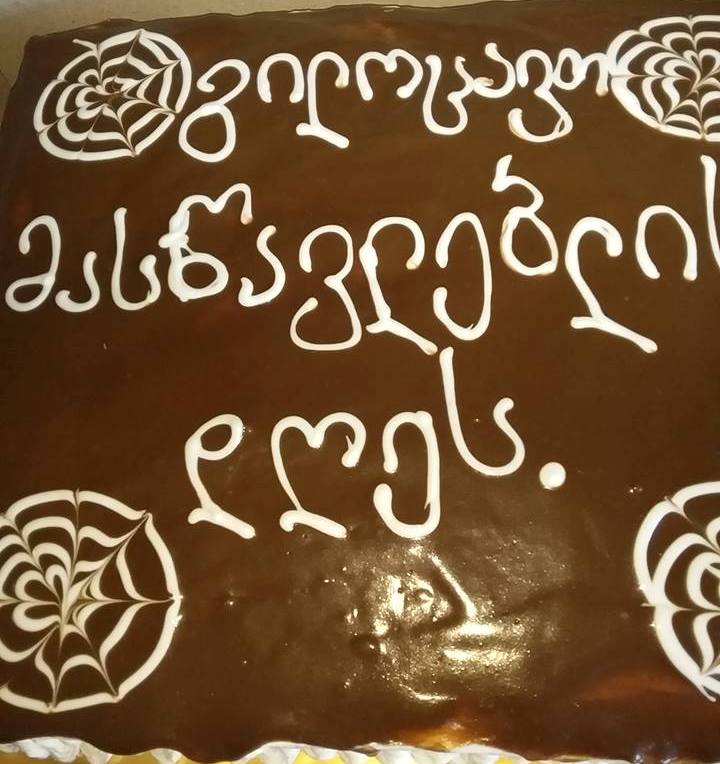 გილოცავთ
მასწავლებლის
დღეს.